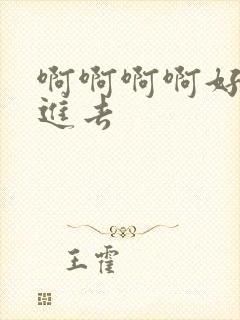 啊啊啊啊好
進去
王霍